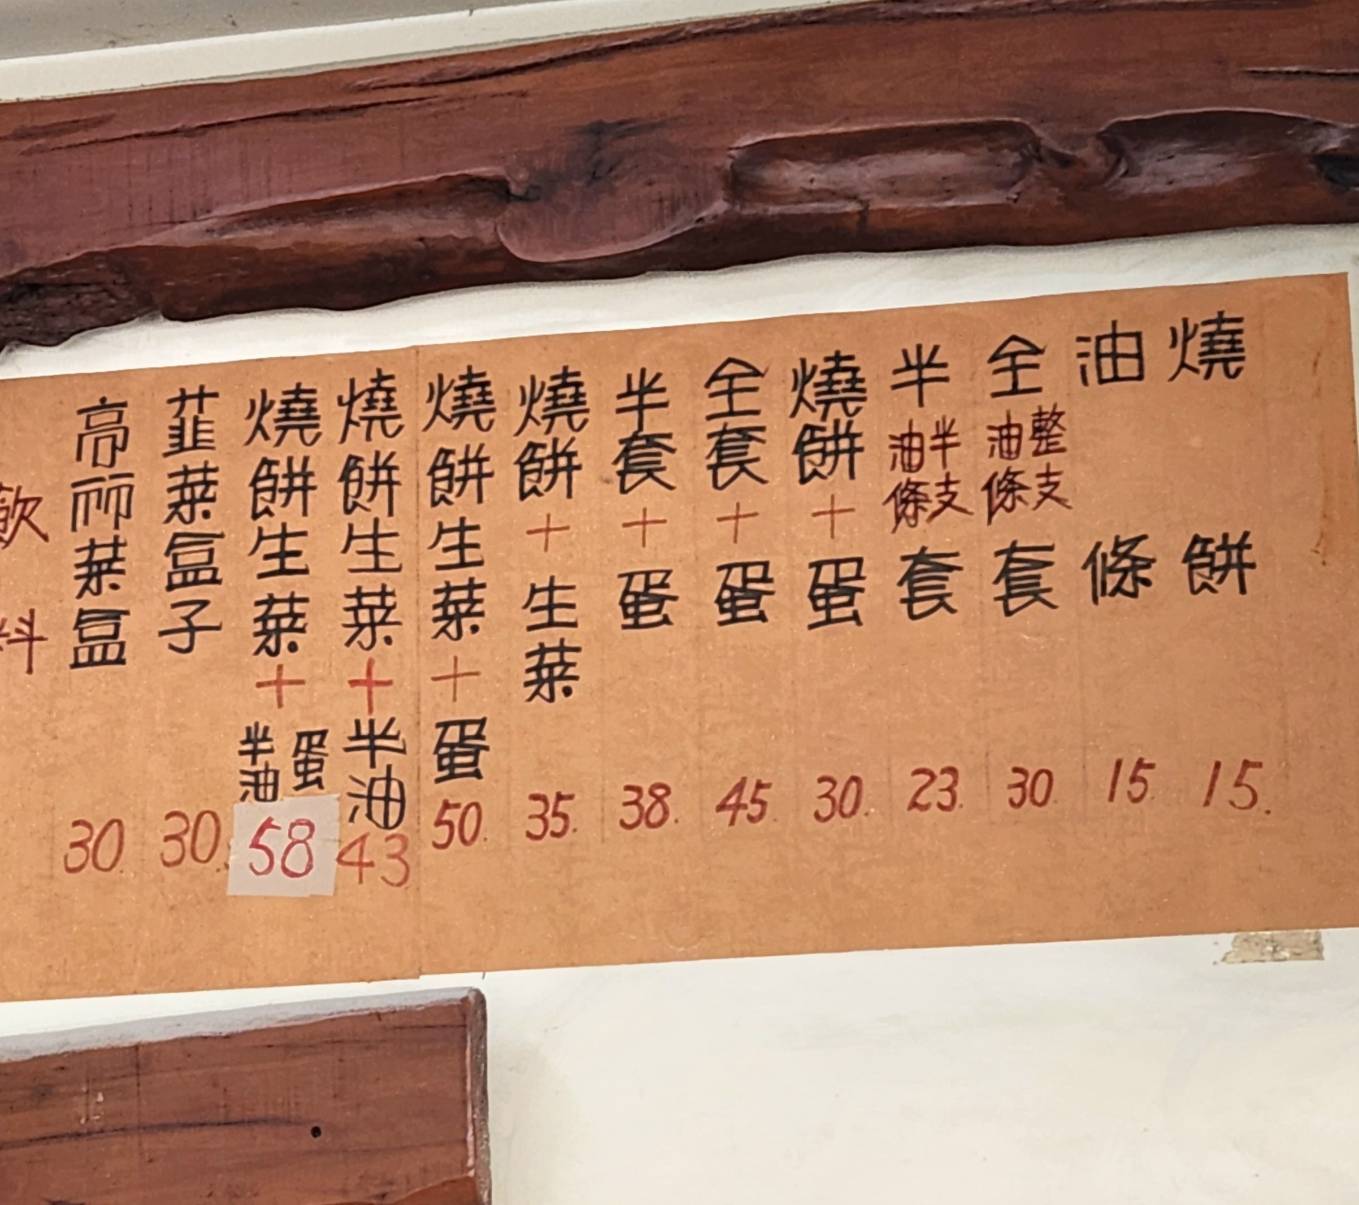 燒餅 15.
油條 15.
全套 油條整支 30.
半套 油條半支 23.
燒餅+蛋 30.
全套+蛋 45.
半套+蛋 38.
燒餅+生菜 35.
燒餅生菜+蛋 50.
燒餅生菜+半油 43
燒餅生菜+蛋半油 58
韮菜盒子 30.
高而菜盒 30.
飲料